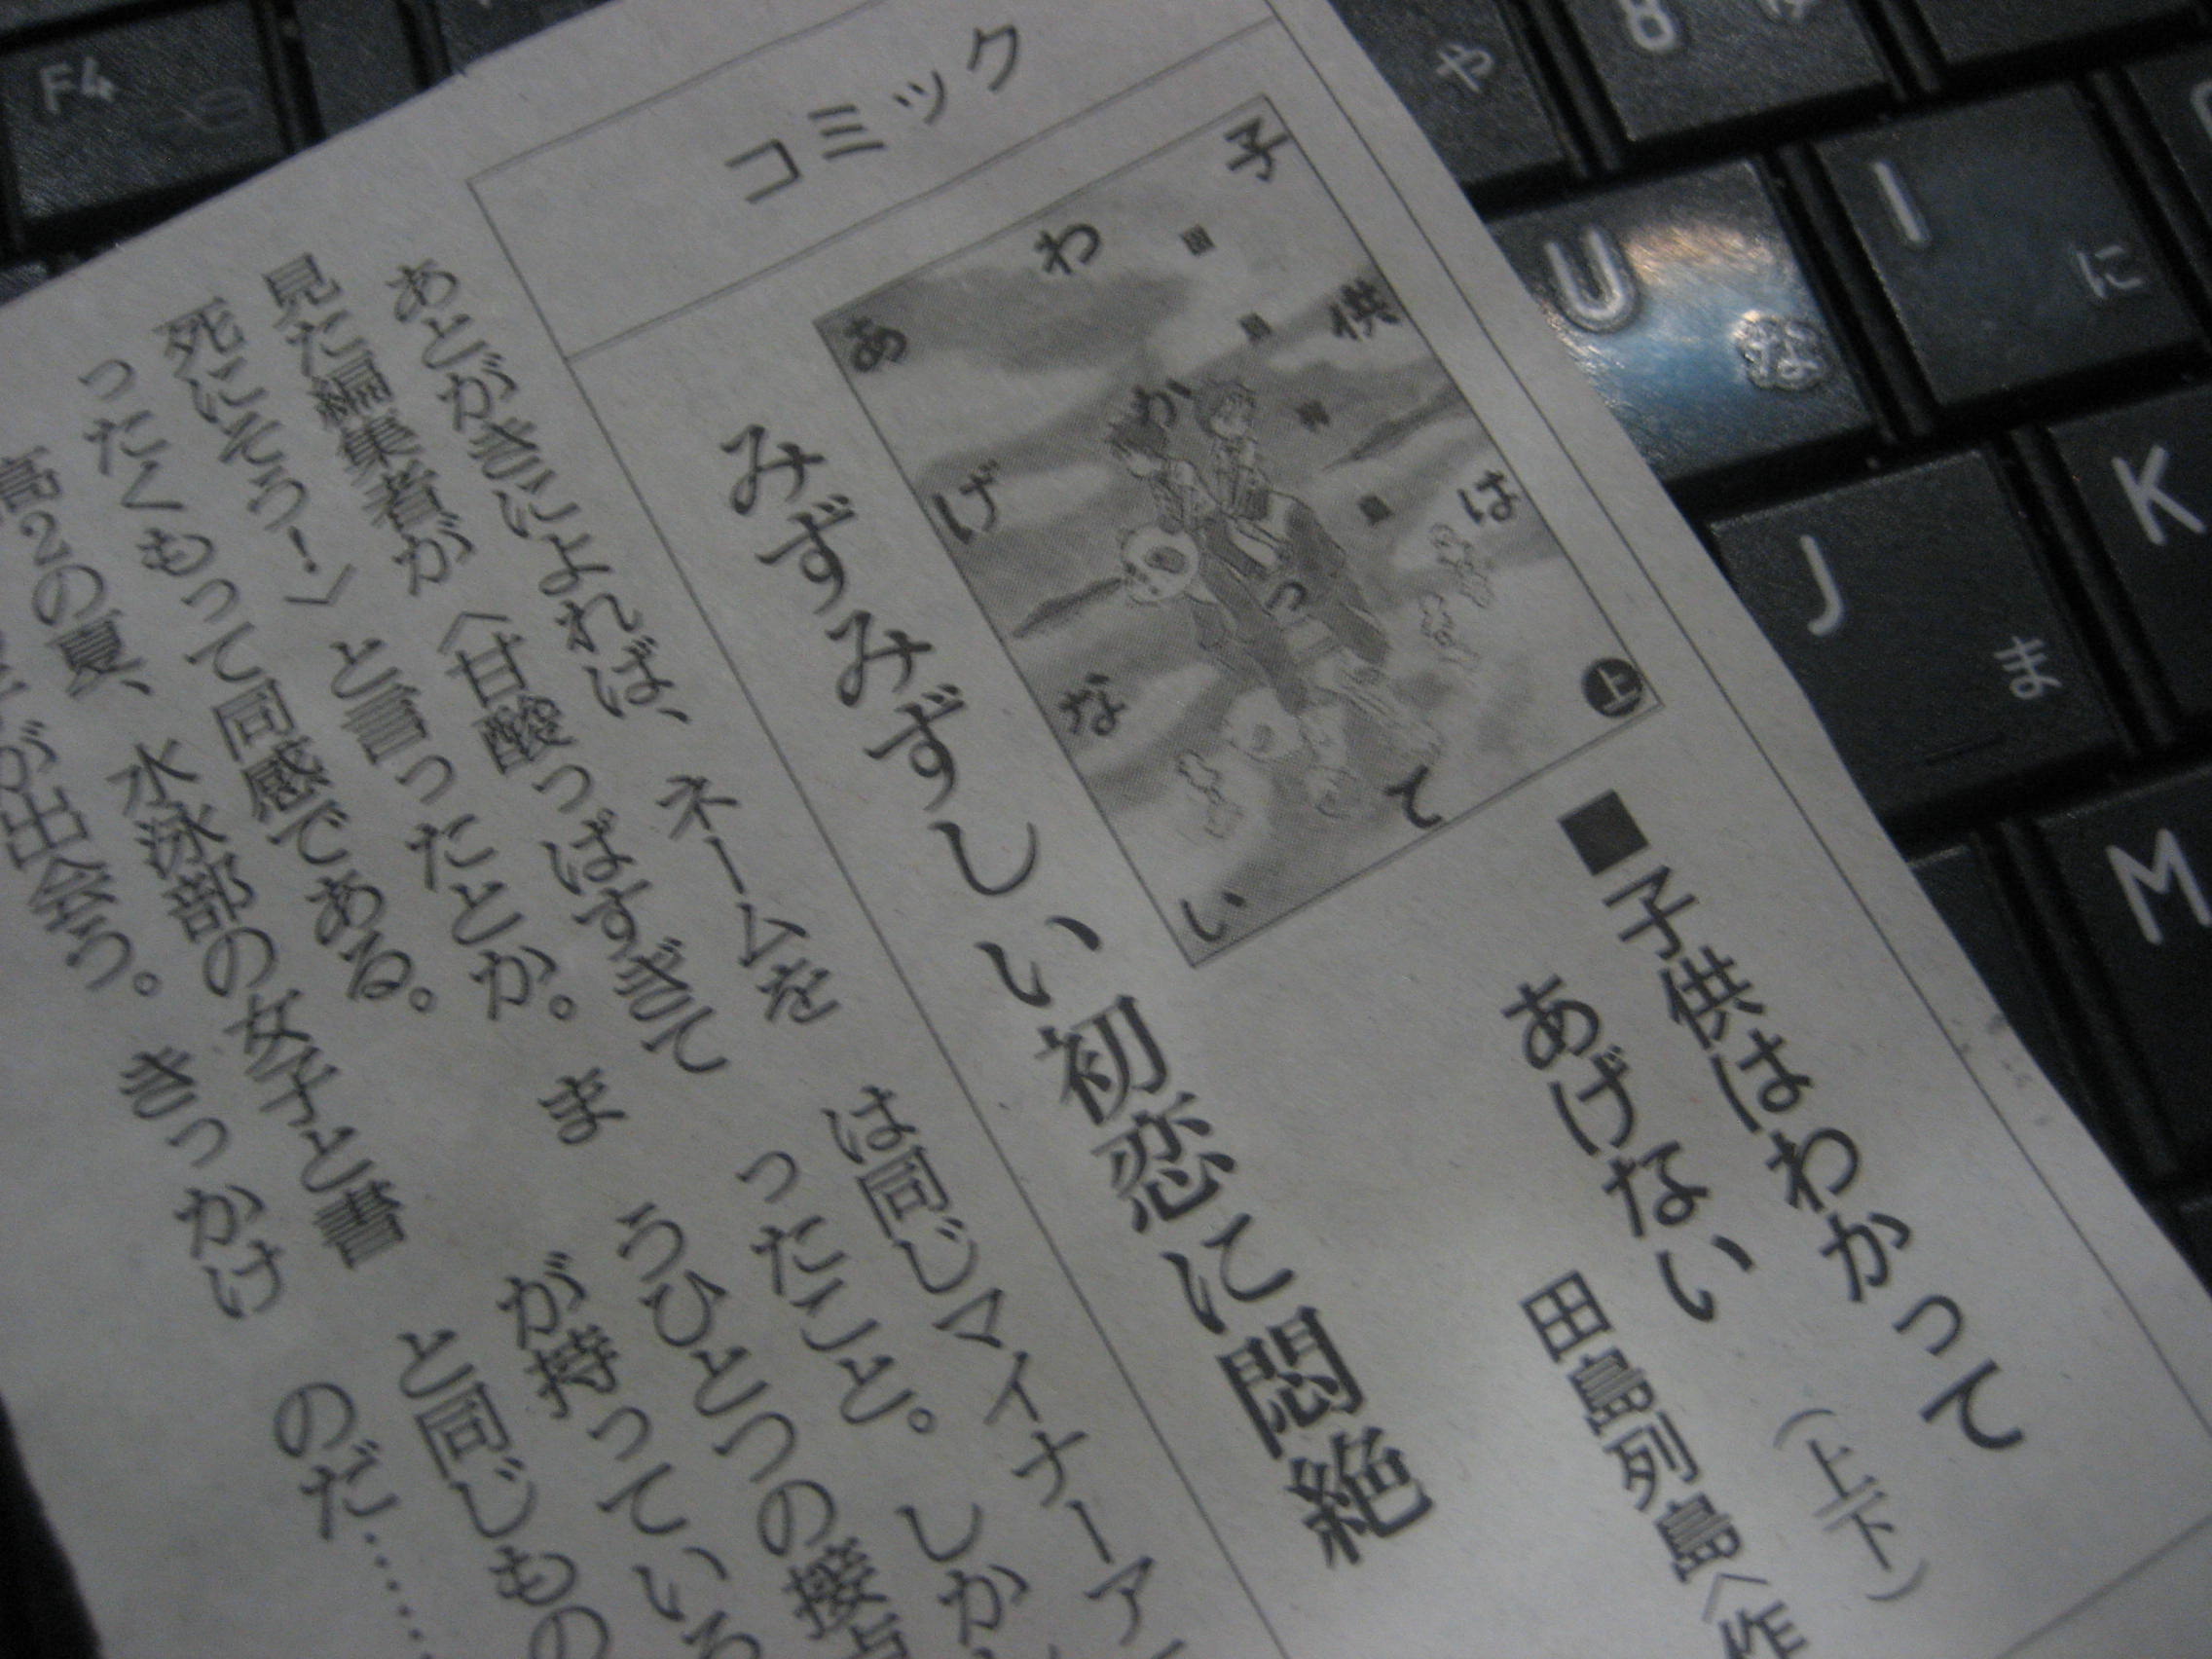 コミック
■子供はわかって
あげない（上下）
田島列島〈作
みずみずしい初恋に悶絶
子供はわかってあげない
上
あとがきによれば、ネームを
見た編集者が〈甘酸っぱすぎて
死にそう！〉と言ったとか。ま
ったくもって同感である。
高2の夏、水泳部の女子と書
が出会う。きっかけ
は同じマイナーア
ったこと。しか
うひとつの接点
が持っている
と同じもの
のだ……
F4
や
8
U
な
I
に
J
ま
K
M